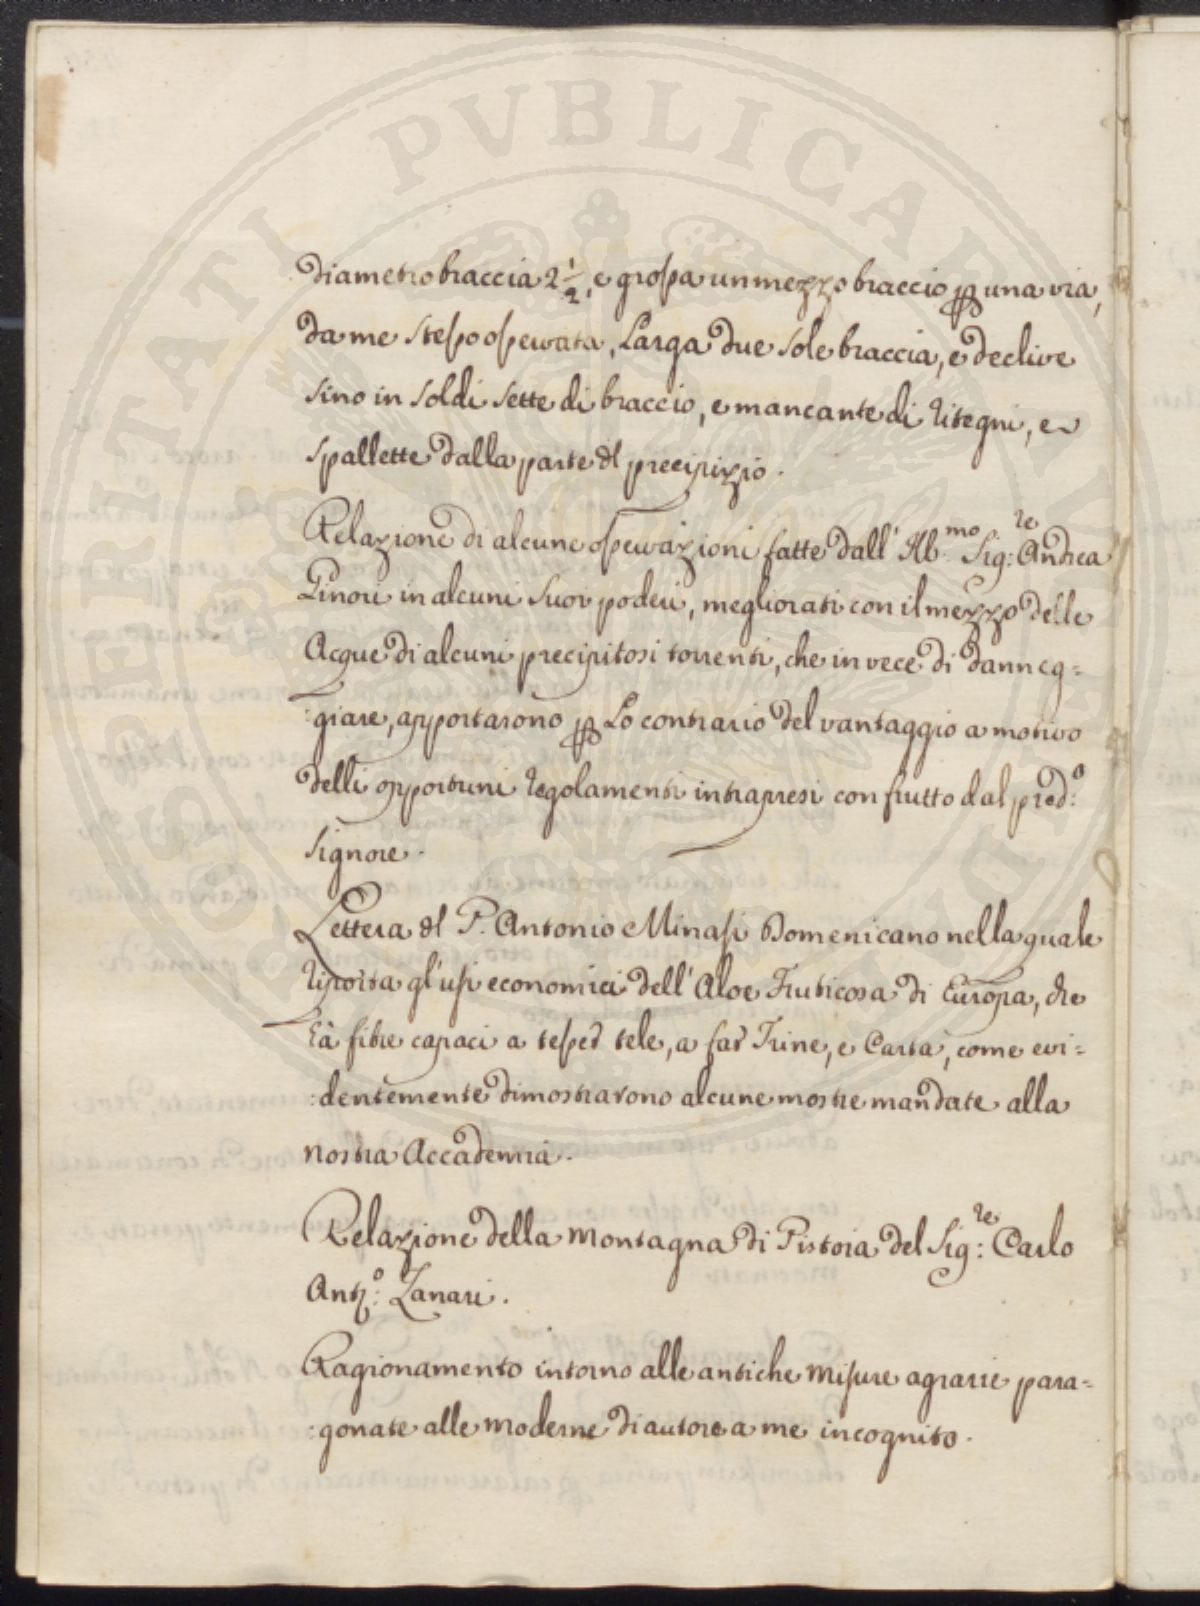 diametro braccia 2 1/2, e grossa un mezzo braccio p una via,
da me stesso osservata, Larga due sole braccia, e declive
sino in soldi sette di braccio, e mancante di ritegni, e
spallette dalla parte dl precipizio.
Relazione di alcune osservazioni fatte dall' Ill.mo Sig:re Andrea
Ginori in alcuni suoi poderi, megliorati con il mezzo delle
Acque di alcuni precipitosi torrenti, che in vece di danneg=
:giare, apportarono p Lo contrario del vantaggio a motivo
delli opportuni regolamenti intrapresi con frutto dal pred:o
Signore.
Lettera dl P. Antonio Minasi Domenicano nella quale
riporta gl'usi economici dell' Aloe Fruticosa di Europa, che
hà fibre capaci a tesser tele, a far Trine, e Carta, come evi=
:dentemente dimostrarono alcune mostre mandate alla
nostra Accademia.
Relazione della Montagna di Pistoia del Sig:re Carlo
Ant:o Zanari.
Ragionamento intorno alle antiche Misure agrarie para=
:gonate alle moderne di autore a me incognito.
PROSPERITATI PVBLICAE AVGENDAE